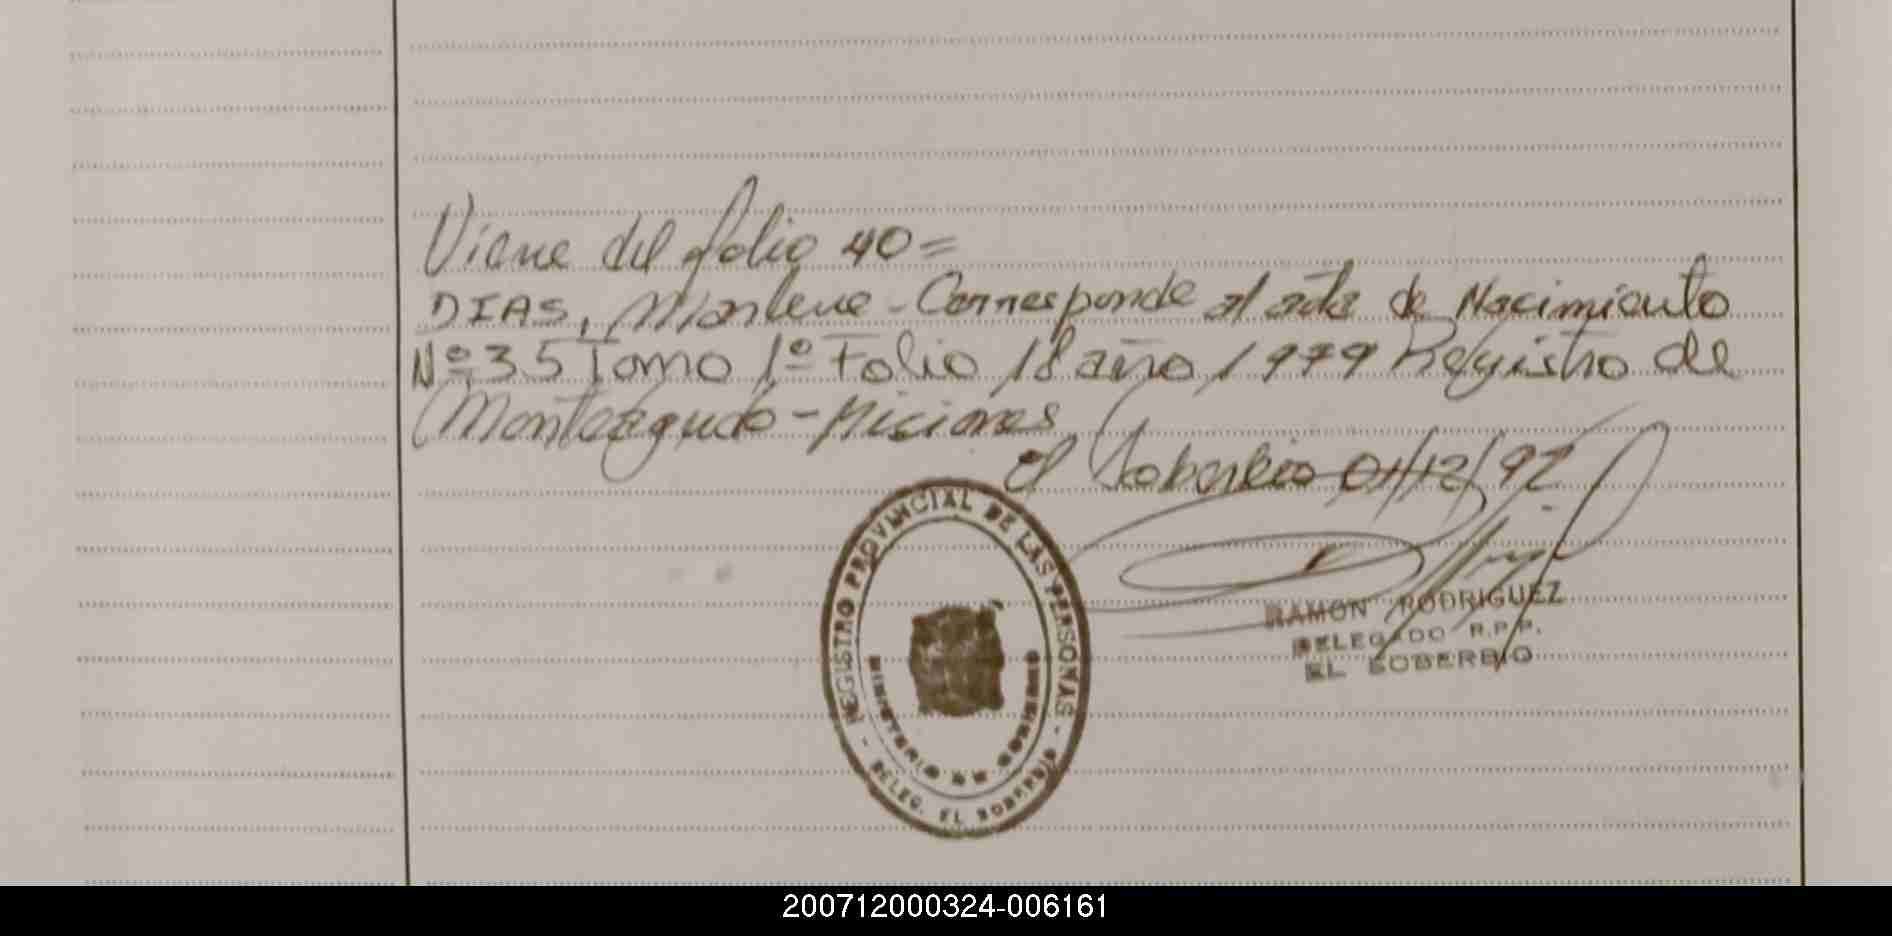 Viene del folio 40=
DIAS, Marlene - Corresponde al acta de Nacimiento
Nº 35 Tomo 1º Folio 18 año 1979 Registro de
Monteagudo - Misiones
El Soberbio 01/12/92
REGISTRO PROVINCIAL DE LAS PERSONAS
MINISTERIO DE GOBIERNO
- DELEG. EL SOBERBIO -
RAMON RODRIGUEZ
DELEGADO R.P.P.
EL SOBERBIO
200712000324-006161